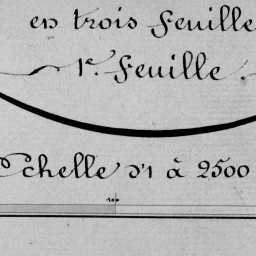 en trois Feuille
1e. Feuille.
Echelle d'1 à 2500
100